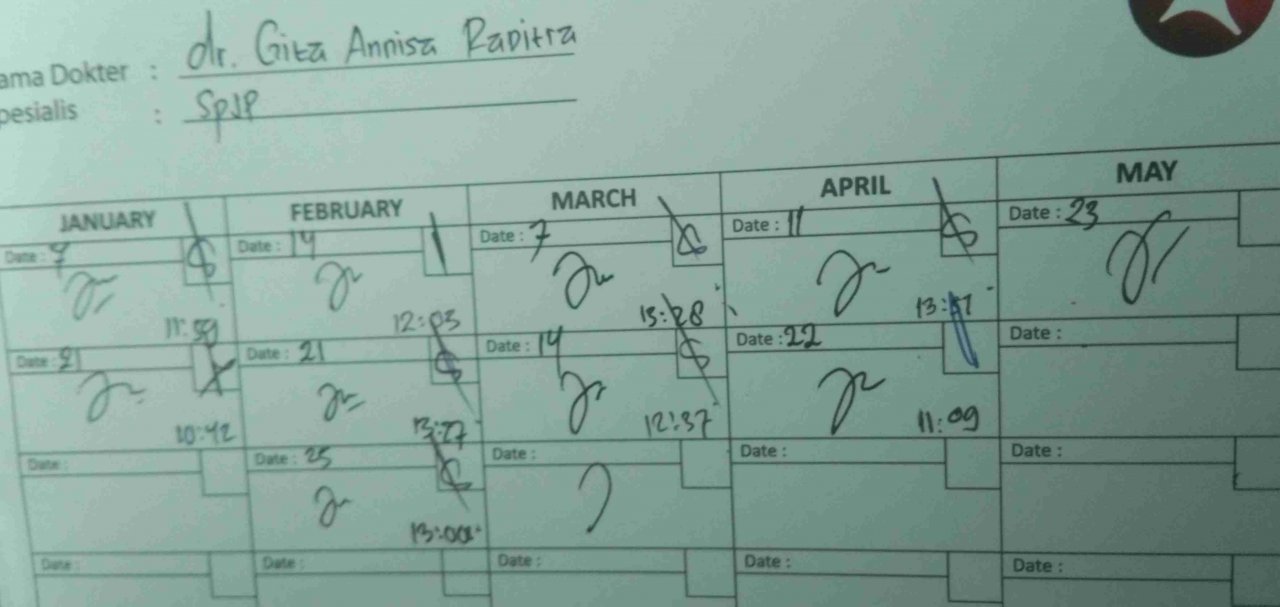 ama Dokter : dr. Gita Annisa Raditra
pesialis : SpJP
JANUARY FEBRUARY MARCH APRIL MAY
Date : 7 Date : 14 Date : 7 Date : 11 Date : 23
11:59 12:03 13:28 13:
Date : 21 Date : 21 Date : 14 Date : 22 Date :
10:42 13:27 12:37 11:09
Date : Date : 25 Date : Date : Date :
13:00
Date : Date : Date : Date : Date :